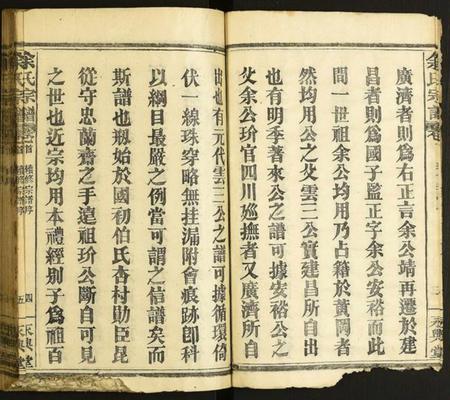 余氏宗譜
廣濟者則爲右正言余公靖再遷於建
昌者則爲國子監正字余公安裕而此
間一世祖余公均用乃占籍於黃岡者
然均用公之父雲三公實建昌所自出
也有明季著來公之譜可據安裕公之
父余公玠官四川巡撫者又廣濟所自
出也有元代雲二公之譜可據循環倚
伏一線珠穿略無挂漏附會痕跡即科
以綱目最嚴之例當可謂之信譜矣而
斯譜也剏始於國初伯氏杏村勛臣昆
從守忠蘭齋之手遠祖玠公斷自可見
之世也近宗均用本禮經別子爲祖百
余氏宗譜
首
續修宗譜序
四
五
天與堂